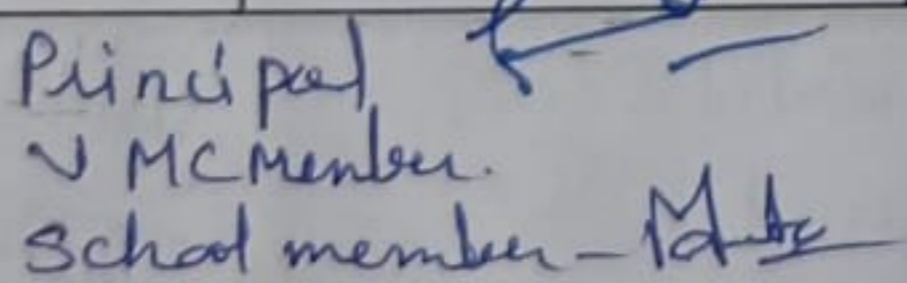 Principal
V MC Member.
School member -